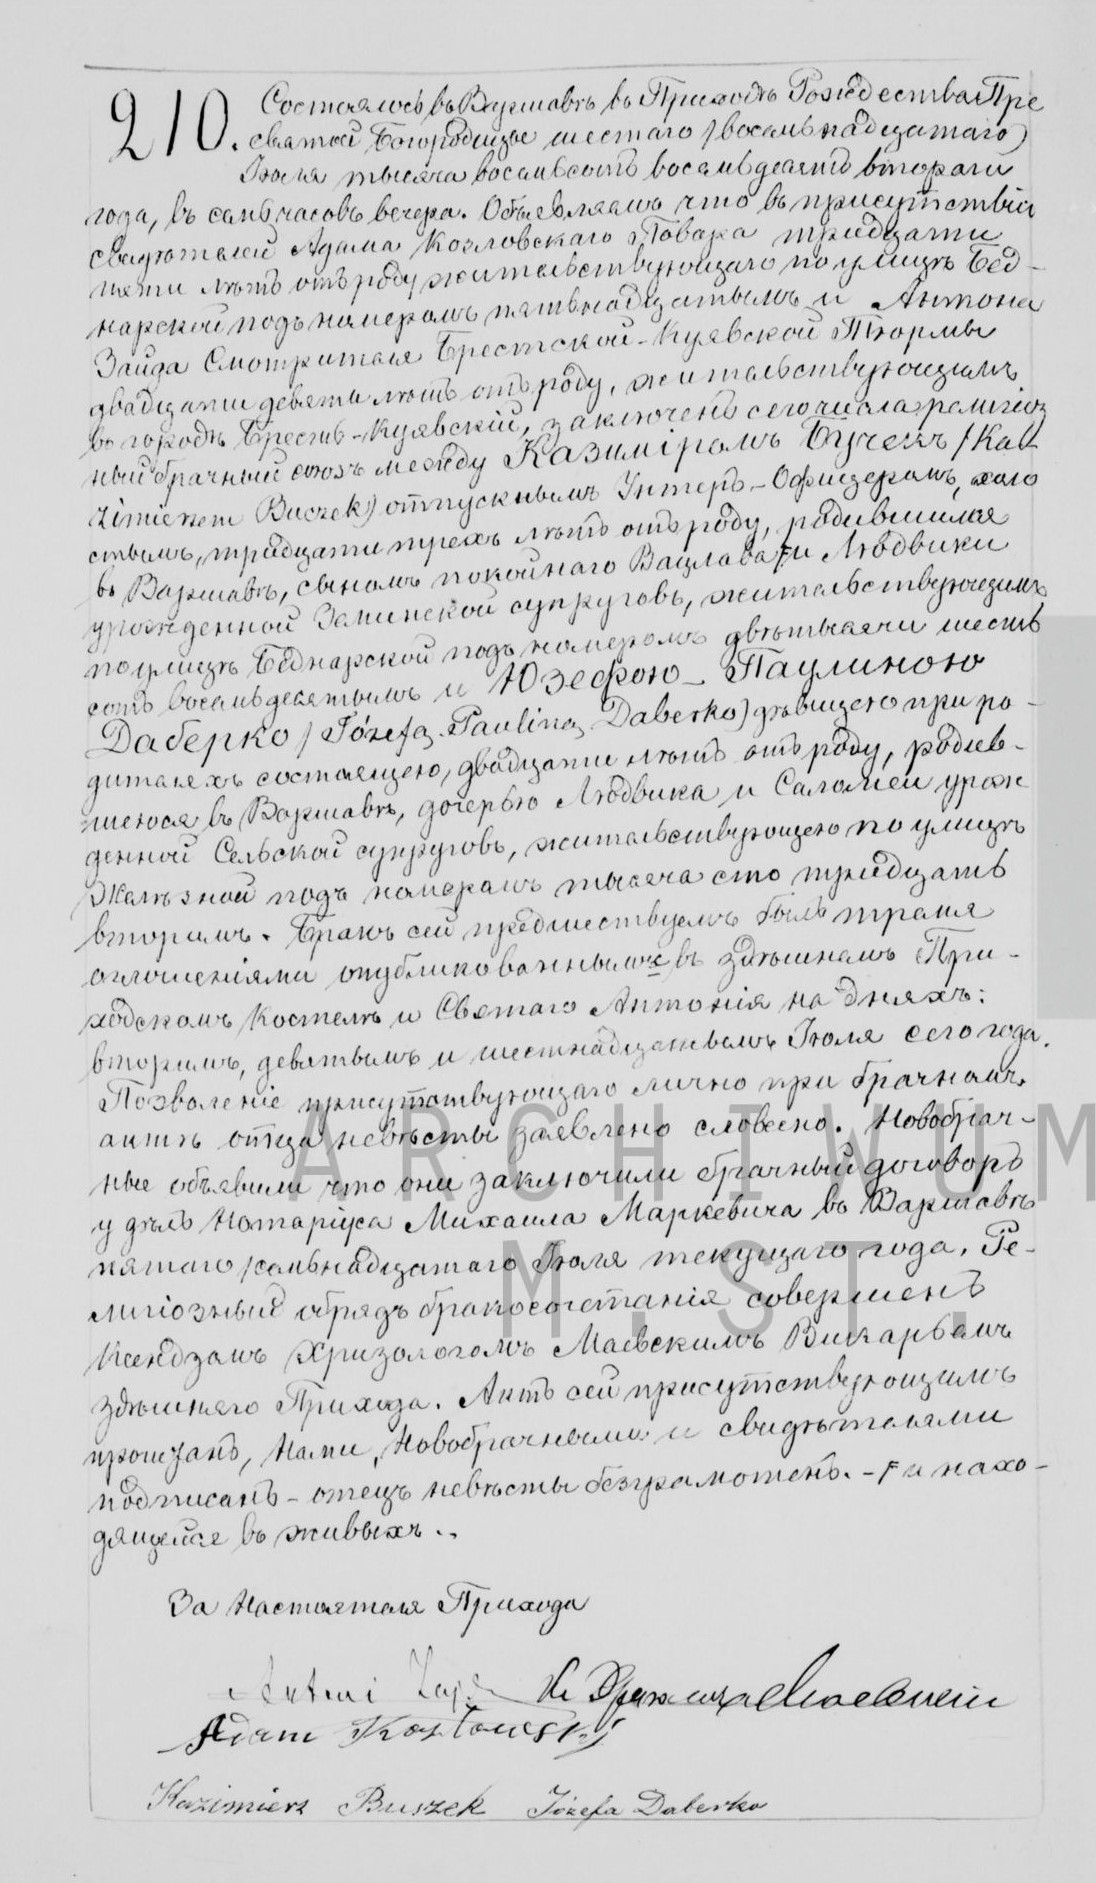 210. Состоялось въ Варшавѣ въ Приходѣ Рождества Пре
святой Богородицы шестаго /восемьнадцатаго/
Іюля тысяча восемьсотъ восемьдесятъ втораго
года, въ семь часовъ вечера. Объявляемъ что въ присутствіи
свидѣтелей Адама Козловскаго Повара тридцати
пяти лѣтъ отъ роду жительствующаго по улицѣ Бед-
нарской подъ номеромъ пятьнадцатымъ и Антона
Заида Смотрителя Брестской-Куявской Тюрмы
двадцати девяти лѣтъ отъ роду, жительствующимъ
въ городѣ Брестѣ-Куявскій, заключенъ сего числа религіоз
ный брачный союзъ между Казиміромъ Бучекъ /Kaz
zimierzem Buczek/ отпускнымъ Унтеръ-Офицеромъ, холо
стымъ, тридцати трехъ лѣтъ отъ роду, родившимся
въ Варшавѣ, сыномъ покойнаго Вацлава ⊦ и Людвики
урожденной супруговъ, жительствующимъ
по улицѣ Беднарской подъ номеромъ двѣ тысячи шесть
сотъ восемьдесятымъ и Юзефою-Паулиною
Даберко /Józefą-Pauliną Daberko/ дѣвицею при ро-
дителяхъ состоящею, двадцати лѣтъ отъ роду, родив-
шеюся въ Варшавѣ, дочерью Людвика и Саломеи урож
денной Сельской супруговъ, жительствующею по улицѣ
Желѣзной подъ номеромъ тысяча сто тридцать
вторымъ. Бракъ сей предшествуемъ былъ тремя
оглошеніями опубликованными въ здѣшнемъ При-
ходскомъ Костелѣ и Святаго Антонія на дняхъ:
вторымъ, девятымъ и шестнадцатымъ Іюля сего года.
Позволеніе присутствующаго лично при брачномъ
актѣ отца невѣсты заявлено словесно. Новобрач-
ные объявили что они заключили брачный договоръ
у дѣлъ Нотаріуса Михаила Маркевича въ Варшавѣ
пятаго /семьнадцатаго Іюля текущаго года. Ре-
лигіозный обрядъ бракосочетанія совершенъ
Ксендзомъ Хризологомъ Маевскимъ Викарьемъ
здѣшняго Прихода. Актъ сей присутствующимъ
прочитанъ, Нами, Новобрачными и свидѣтелями
подписанъ - отецъ невѣсты безграмотенъ. - ⊦ и нахо-
дящейся въ живыхъ..
За Настоятеля Прихода
Antoni
Adam Kozłowski
Kazimierz Buszek Józefa Daberko
ARCHIWUM
M. ST.